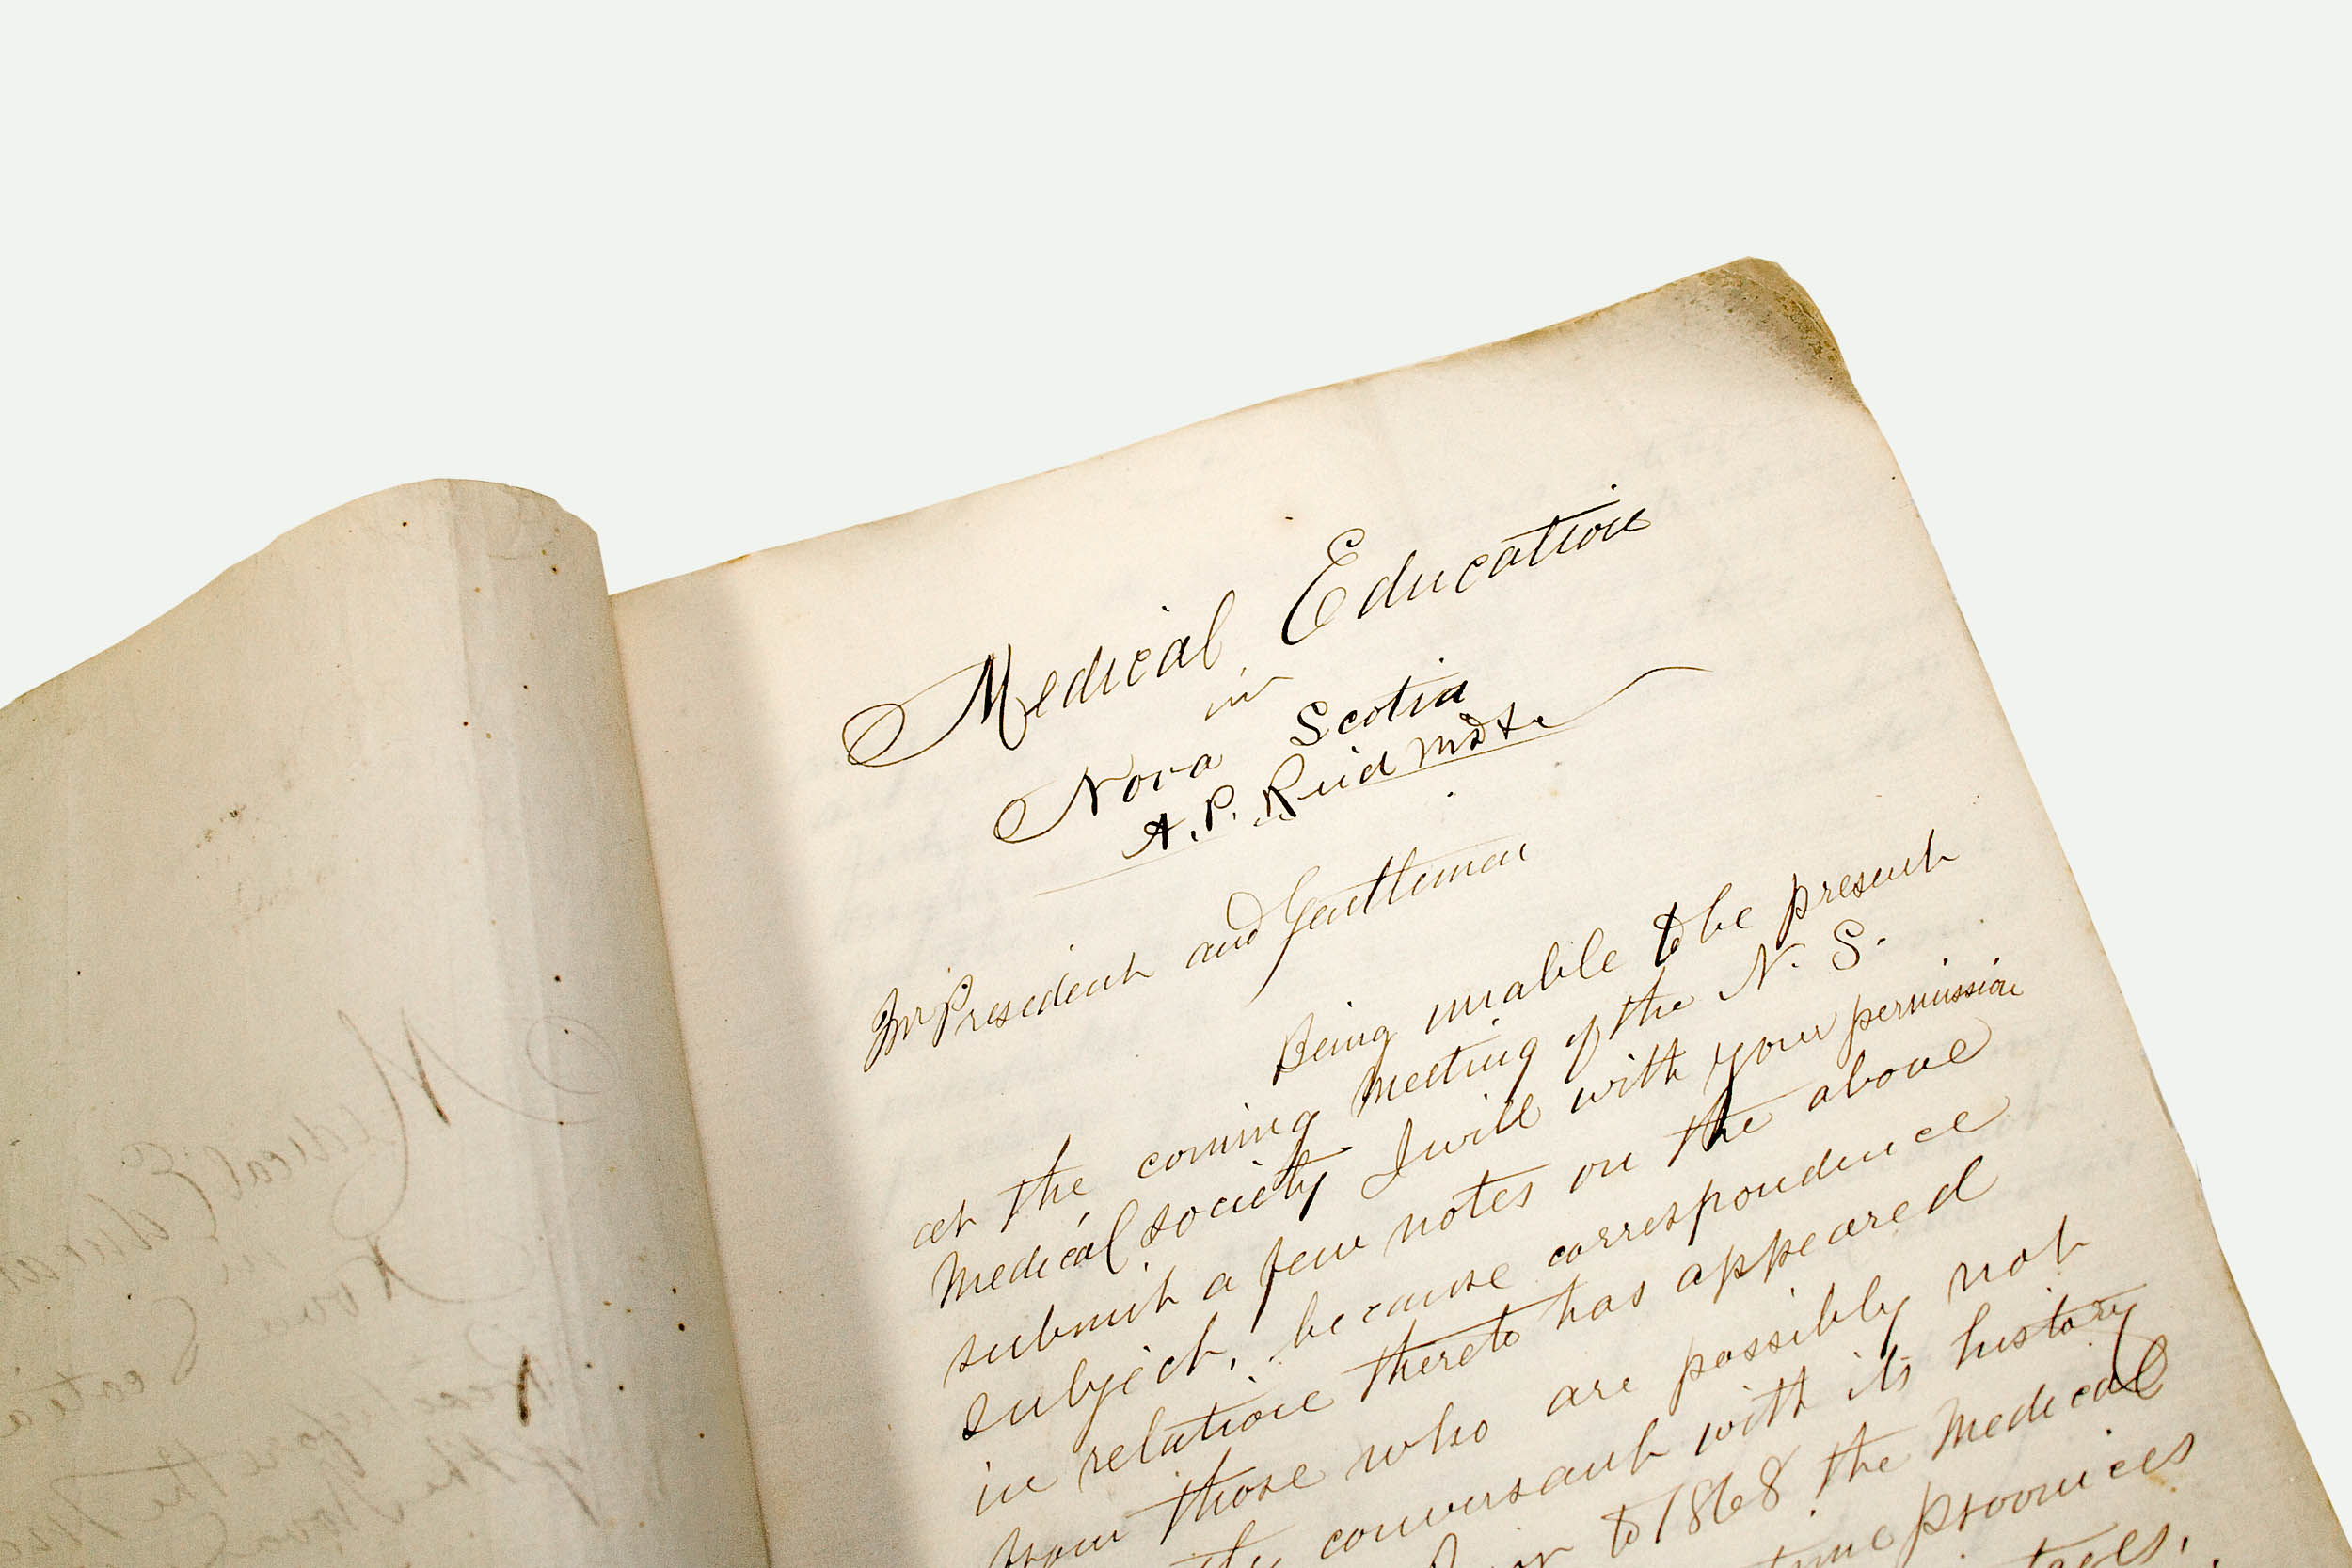 Medical Education
in
Nova Scotia
A. P. Reid MD &c
Mr President and Gentlemen
Being unable to be present
at the coming meeting of the N. S.
Medical society I will with your permission
submit a few notes on the above
subject, because correspondence
in relation thereto has appeared
from those who are possibly not
conversant with its history
to 1868 the Medical
provinces
Medical Educat
in
Nova Scotia
Read before the
of the Nova